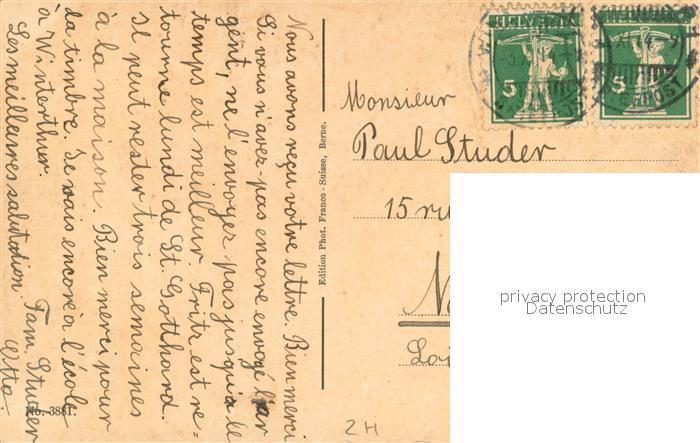 Nous avons reçu votre lettre. Bien merci
Si vous n'avez-pas encore envoyé l'ar
gent, ne l'envoyez pas jusqu'a le
temps est meilleur. Fritz est re=
tourne lundi de St. Gotthard.
Il peut rester trois semaines
à la maison. Bien merci pour
da timbre. Je vais encore à l'école
à Winterthur. Fam. Studer
Les meilleures salutation. Otto.
No. 3881.
Edition Phot. Franco-Suisse, Berne.
HELVETIA
5
HELVETIA
5
Monsieur
Paul Studer
15 ru
privacy protection
Datenschutz
2H